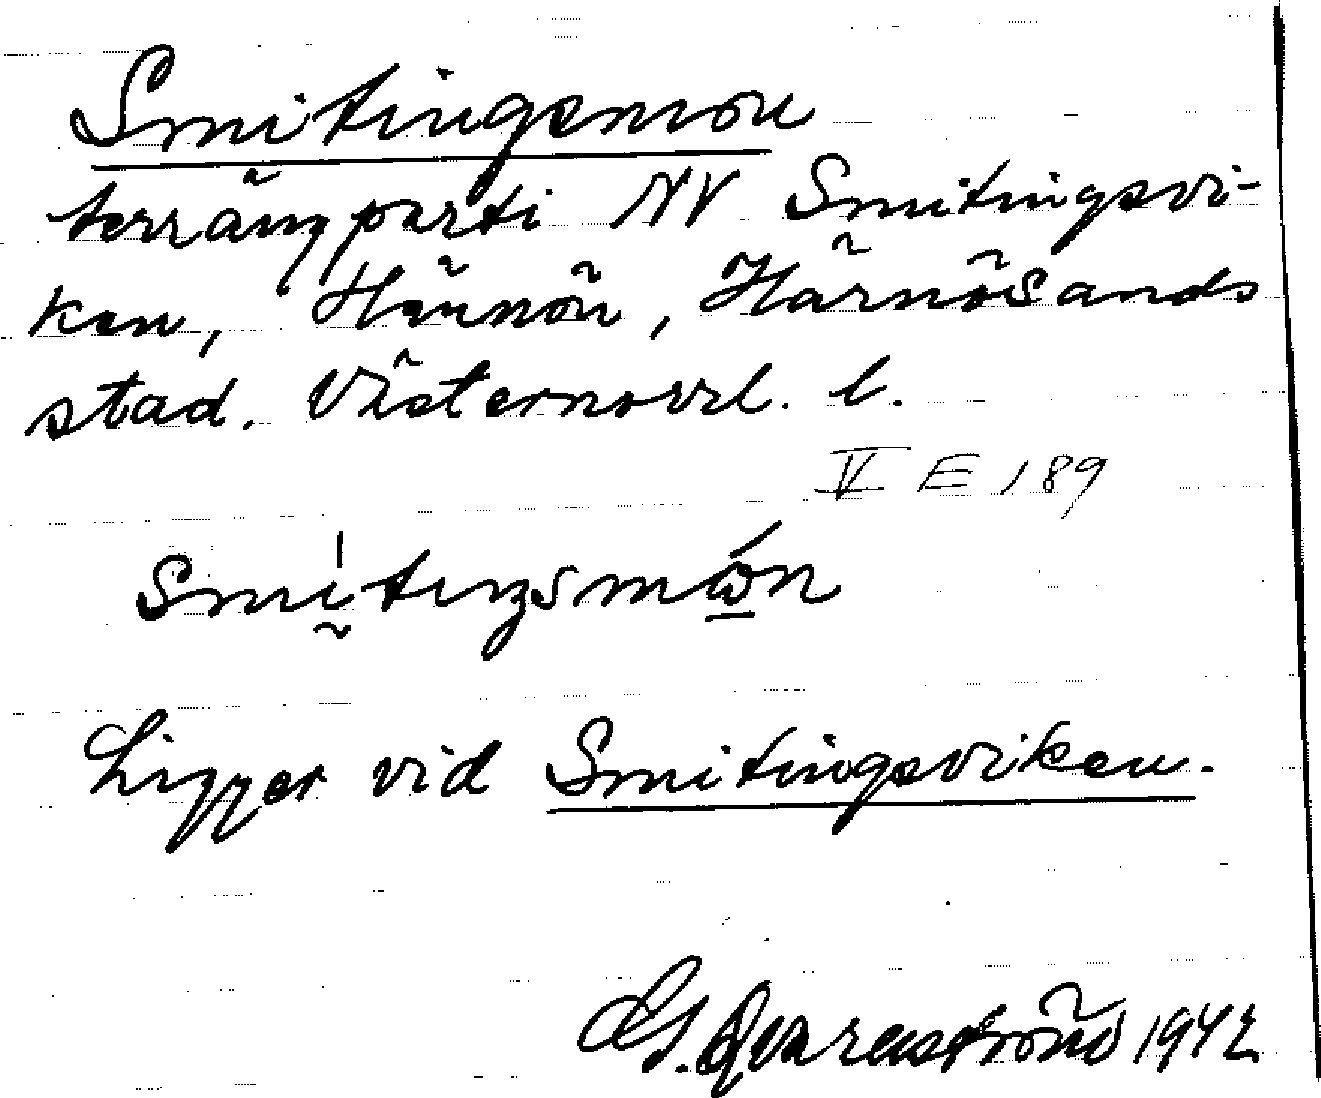 Smitingsmon
terrängparti NV Smitingsvi-
ken, Härnön, Härnösands
stad. Västernorrl. l.
V E 189
Smítiŋsmώ̲n
Ligger vid Smitingsviken.
G. Qvarenström 1942